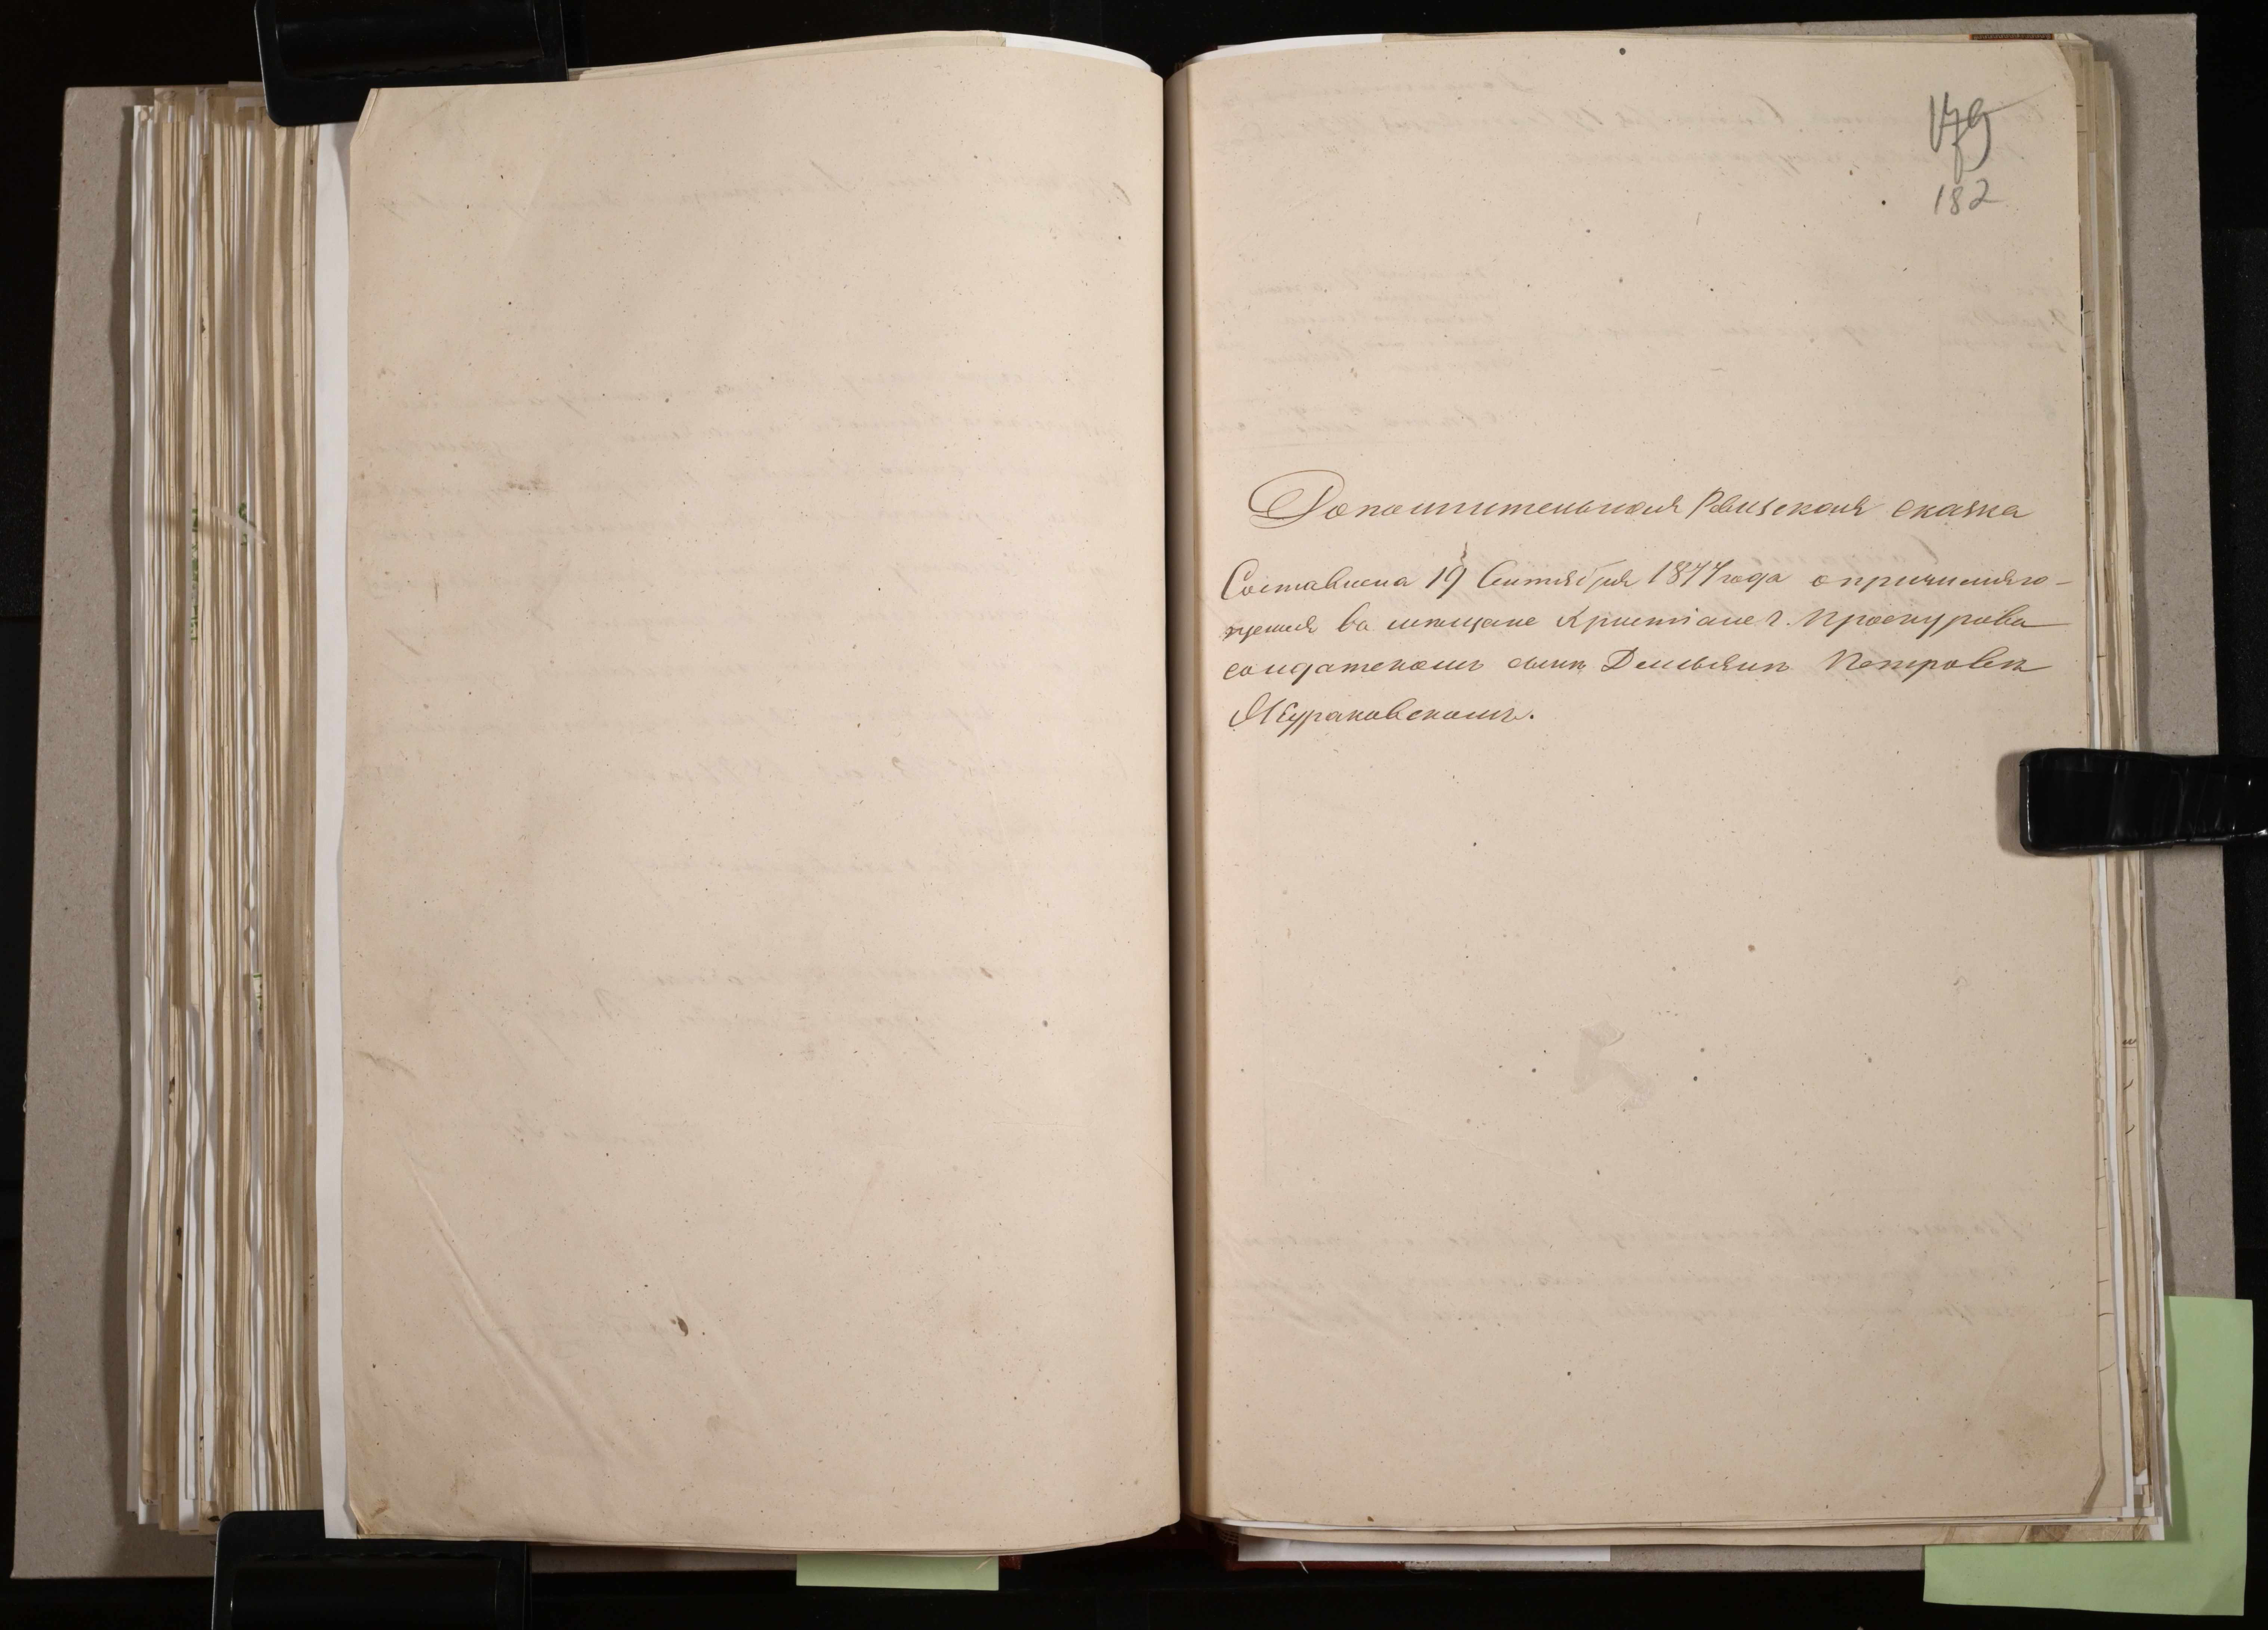 179
182
Дополнительная Ревизская сказка
Составлена 19 Сентября 1877 года о причисляю-
щемся въ мещане Христiане г. Проскурова
солдатскомъ сынѣ Демьянѣ Петровѣ
Жураковскомъ.